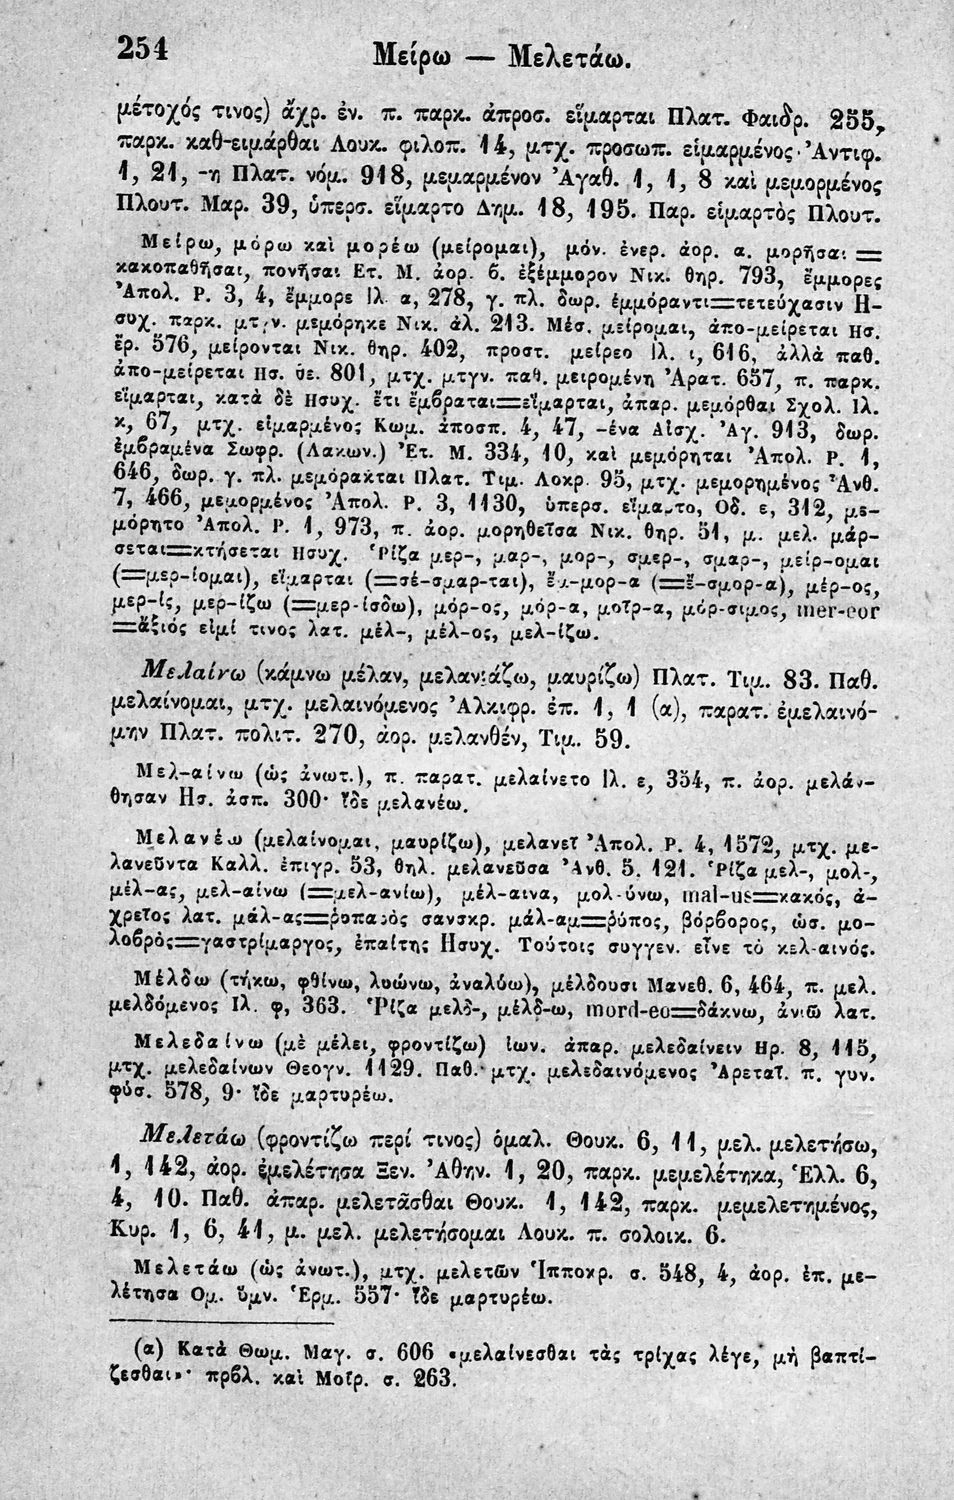 254 Μείρω — Μελετάω.
μέτοχός τινος) ἄχρ. ἐν. π. παρκ. ἀπροσ. εἵμαρται Πλατ. Φαιδρ. 255,
παρκ. καθ-ειμάρθαι Λουκ. φιλοπ. 14, μτχ. προσωπ. εἱμαρμένος Ἀντιφ.
1, 21, -η Πλατ. νόμ. 918, μεμαρμένον Ἀγαθ. 1, 1, 8 καὶ μεμορμένος
Πλουτ. Μαρ. 39, ὑπερσ. εἵμαρτο Δημ. 18, 195. Παρ. εἱμαρτὸς Πλουτ.
Μείρω, μόρω καὶ μορέω (μείρομαι), μόν. ἐνερ. ἀορ. α. μορῆσαι =
κακοπαθῆσαι, πονῆσαι Ετ. Μ. ἀορ. β. ἐξέμμορον Νικ. θηρ. 793, ἔμμορες
Ἀπολ. Ρ. 3, 4, ἔμμορε Ιλ. α, 278, γ. πλ. δωρ. ἐμμόραντι=τετεύχασιν Η-
συχ. παρκ. μτγν. μεμόρηκε Νικ. ἀλ. 213. Μέσ. μείρομαι, ἀπο-μείρεται Ησ.
ἔρ. 576, μείρονται Νικ. θηρ. 402, προστ. μείρεο Ιλ. ι, 616, ἀλλὰ παθ.
ἀπο-μείρεται Ησ. θε. 801, μτχ. μτγν. παθ. μειρομένη Ἀρατ. 657, π. παρκ.
εἵμαρται, κατὰ δὲ Ησυχ. ἔτι ἔμβραται=εἵμαρται, ἀπαρ. μεμόρθαι Σχολ. Ιλ.
κ, 67, μτχ. εἱμαρμένος Κωμ. ἀποσπ. 4, 47, -ένα Αἰσχ. Ἀγ. 913, δωρ.
ἐμβραμένα Σωφρ. (Λακων.) Ἐτ. Μ. 334, 10, καὶ μεμόρηται Ἀπολ. Ρ. 1,
646, δωρ. γ. πλ. μεμόρακται Πλατ. Τιμ. Λοκρ. 95, μτχ. μεμορημένος Ἀνθ.
7, 466, μεμορμένος Ἀπολ. Ρ. 3, 1130, ὑπερσ. εἵμαρτο, Οδ. ε, 312, με-
μόρητο Ἀπολ. Ρ. 1, 973, π. ἀορ. μορηθεῖσα Νικ. θηρ. 51, μ. μελ. μάρ-
σεται=κτήσεται Ησυχ. Ῥίζα μερ-, μαρ-, μορ-, σμερ-, σμαρ-, μείρ-ομαι
(=μερ-ίομαι), εἵμαρται (=σέ-σμαρ-ται), ἔμ-μορ-α (=ἔ-σμορ-α), μέρ-ος,
μερ-ίς, μερ-ίζω (=μερ-ίσδω), μόρ-ος, μόρ-α, μοῖρ-α, μόρ-σιμος, mer-eor
=ἄξιός εἰμί τινος λατ. μέλ-, μέλ-ος, μελ-ίζω.
Μελαίνω (κάμνω μέλαν, μελανιάζω, μαυρίζω) Πλατ. Τιμ. 83. Παθ.
μελαίνομαι, μτχ. μελαινόμενος Ἀλκιφρ. ἐπ. 1, 1 (α), παρατ. ἐμελαινό-
μην Πλατ. πολιτ. 270, ἀορ. μελανθέν, Τιμ. 59.
Μελ-αίνω (ὡς ἀνωτ.), π. παρατ. μελαίνετο Ιλ. ε, 354, π. ἀορ. μελάν-
θησαν Ησ. ἀσπ. 300· ἴδε μελανέω.
Μελανέω (μελαίνομαι, μαυρίζω), μελανεῖ Ἀπολ. Ρ. 4, 1572, μτχ. με-
λανεῦντα Καλλ. ἐπιγρ. 53, θηλ. μελανεῦσα Ἀνθ. 5. 121. Ῥίζα μελ-, μολ-,
μέλ-ας, μελ-αίνω (=μελ-ανίω), μέλ-αινα, μολ-ύνω, mal-us=κακός, ἀ-
χρεῖος λατ. μάλ-ας=ῥυπαρὸς σανσκρ. μάλ-αμ=ῥύπος, βόρβορος, ὡσ. μο-
λοβρὸς=γαστρίμαργος, ἐπαίτης Ησυχ. Τούτοις συγγεν. εἶνε τὸ κελ-αινός.
Μέλδω (τήκω, φθίνω, λυώνω, ἀναλύω), μέλδουσι Μανεθ. 6, 464, π. μελ.
μελδόμενος Ιλ. φ, 363. Ῥίζα μελδ-, μέλδ-ω, mord-eo=δάκνω, ἀνιῶ λατ.
Μελεδαίνω (μὲ μέλει, φροντίζω) ἰων. ἀπαρ. μελεδαίνειν Ηρ. 8, 115,
μτχ. μελεδαίνων Θεογν. 1129. Παθ. μτχ. μελεδαινόμενος Ἀρεταῖ. π. γυν.
φύσ. 578, 9· ἴδε μαρτυρέω.
Μελετάω (φροντίζω περί τινος) ὁμαλ. Θουκ. 6, 11, μελ. μελετήσω,
1, 142, ἀορ. ἐμελέτησα Ξεν. Ἀθην. 1, 20, παρκ. μεμελέτηκα, Ἑλλ. 6,
4, 10. Παθ. ἀπαρ. μελετᾶσθαι Θουκ. 1, 142, παρκ. μεμελετημένος,
Κυρ. 1, 6, 41, μ. μελ. μελετήσομαι Λουκ. π. σολοικ. 6.
Μελετάω (ὡς ἀνωτ.), μτχ. μελετῶν Ἱπποκρ. σ. 548, 4, ἀορ. ἐπ. με-
λέτησα Ομ. ὕμν. Ἑρμ. 557· ἴδε μαρτυρέω.
(α) Κατὰ Θωμ. Μαγ. σ. 606 «μελαίνεσθαι τὰς τρίχας λέγε, μὴ βαπτί-
ζεσθαι»· πρβλ. καὶ Μοῖρ. σ. 263.